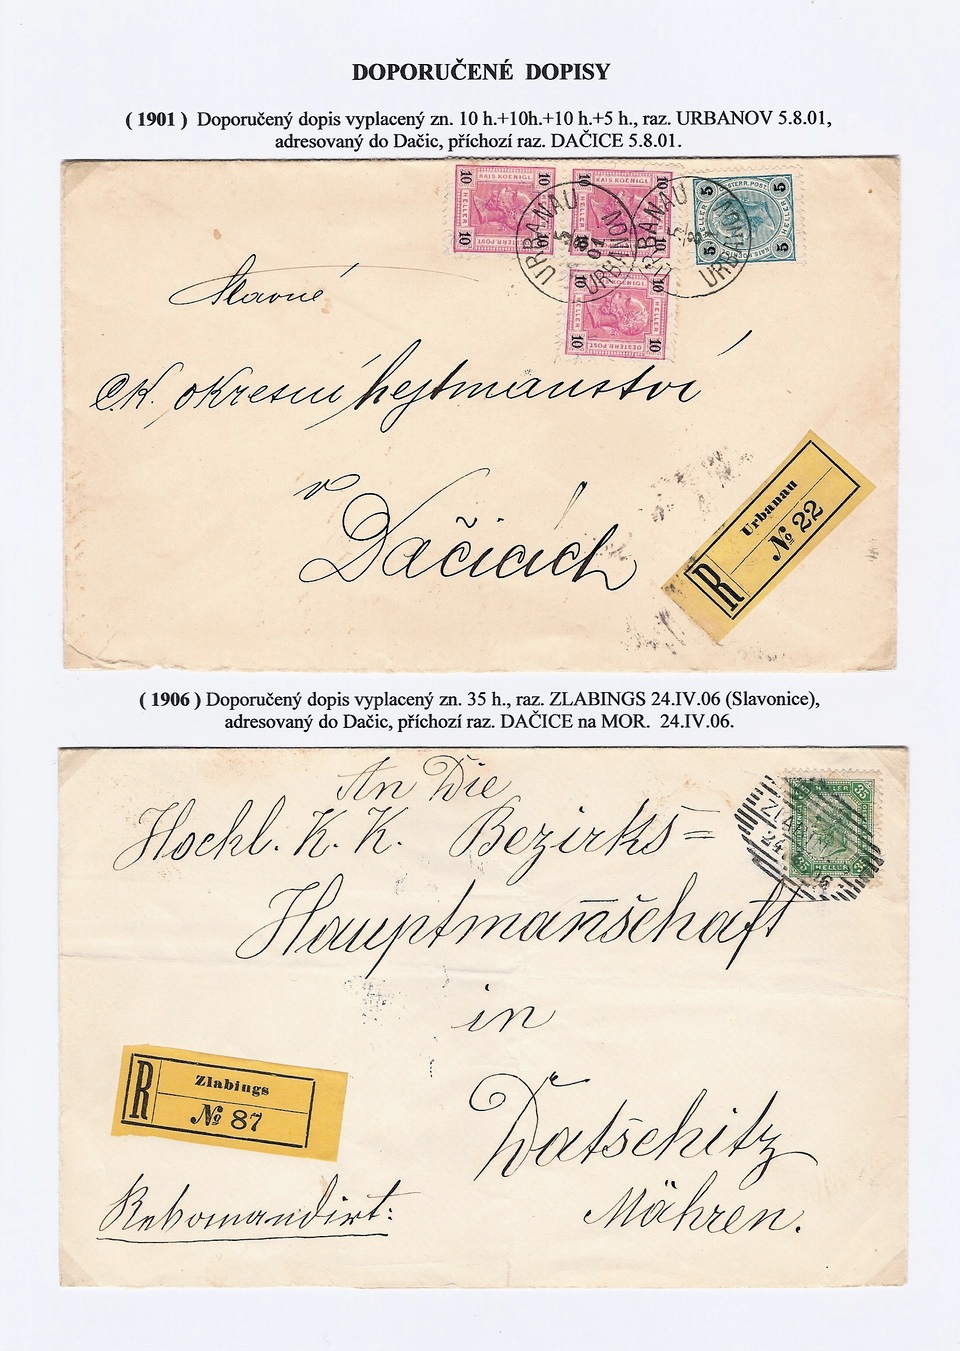 DOPORUČENÉ DOPISY
( 1901 ) Doporučený dopis vyplacený zn. 10 h.+10h.+10 h.+5 h., raz. URBANOV 5.8.01,
adresovaný do Dačic, příchozí raz. DAČICE 5.8.01.
10 KAIS. KOENIGL. 10
HELLER HELLER
10 OESTERR. POST. 10
10 KAIS. KOENIGL. 10
10
10 10
HELLER HELLER
10 OESTERR. POST. 10
5 OESTERR. POST. 5
HELLER HELLER
5 5
URBANAU
5 8 01
URBANOV
URBANAU
5 8
URBANOV
Slavné
C.K. okresní hejtmanství
v
Dačicích
R Urbanau
№ 22
( 1906 ) Doporučený dopis vyplacený zn. 35 h., raz. ZLABINGS 24.IV.06 (Slavonice),
adresovaný do Dačic, příchozí raz. DAČICE na MOR. 24.IV.06.
35 HELLER 35
35 HELLER 35
An Die
Hochl. K. K. Bezirks=
Hauptmannschaft
in
Datschitz
Mähren.
R Zlabings
№ 87
Rekomandirt: